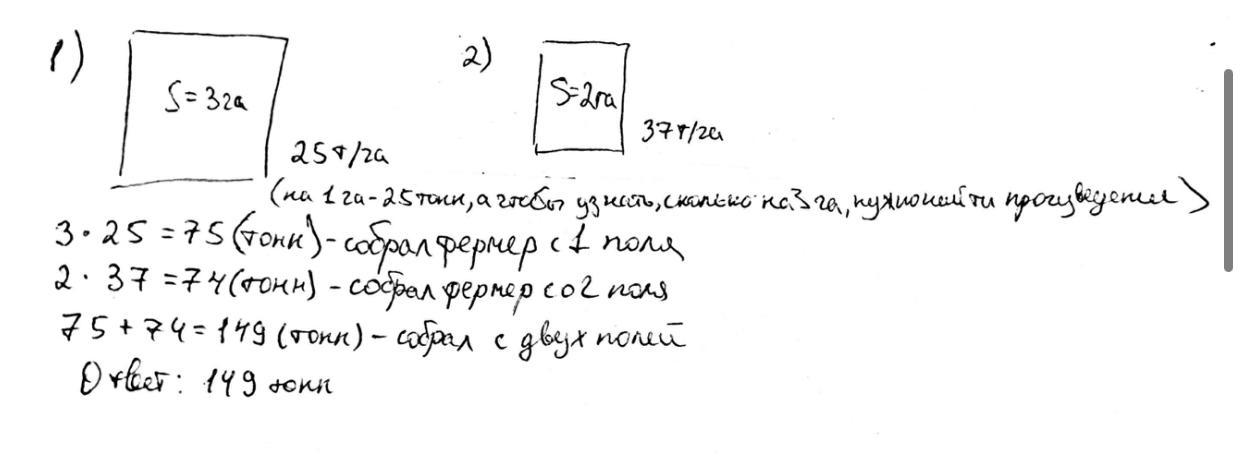 1) 2)
S=3га S=2га
25т/га 37т/га
(на 1 га-25 тонн, а чтобы узнать, сколько на 3 га, нужно найти произведение)
3·25=75(тонн)-собрал фермер с 1 поля
2·37=74(тонн)-собрал фермер со 2 поля
75+74=149(тонн)-собрал с двух полей
Ответ: 149 тонн